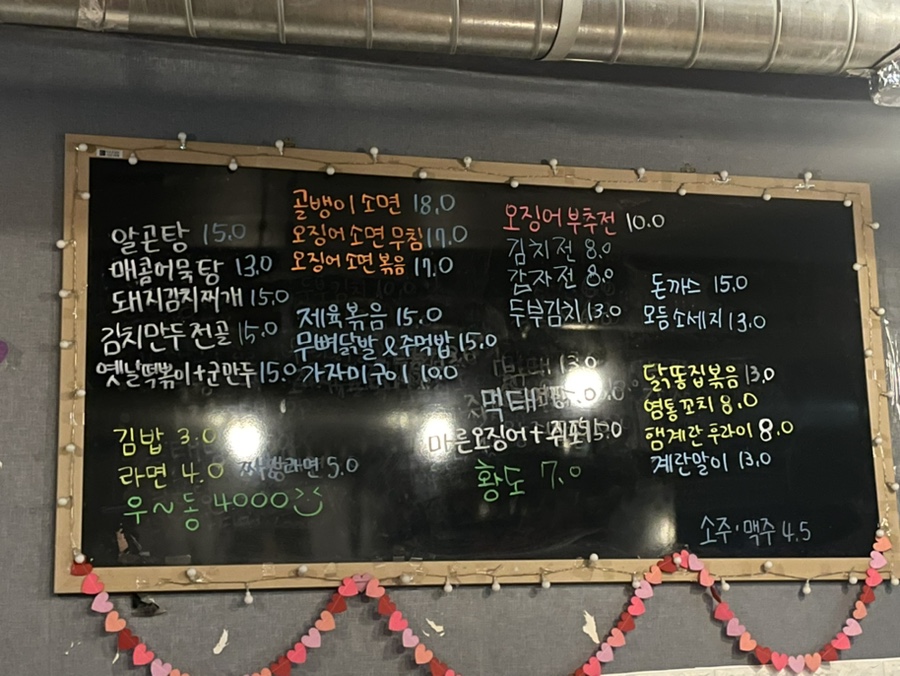 알곤탕 15.0
매콤어묵탕 13.0
돼지김치찌개 15.0
김치만두전골 15.0
옛날떡볶이+군만두 15.0
김밥 3.0
라면 4.0 짜장라면 5.0
우~동 4000
골뱅이소면 18.0
오징어소면무침 17.0
오징어소면볶음 17.0
제육볶음 15.0
무뼈닭발&주먹밥 15.0
가자미구이 10.0
오징어부추전 10.0
김치전 8.0
감자전 8.0
두부김치 13.0
13.0
먹태
마른오징어+쥐포 15.0
황도 7.0
돈까스 15.0
모듬소세지 13.0
닭똥집볶음 13.0
염통꼬치 8.0
햄계란후라이 8.0
계란말이 13.0
소주·맥주 4.5